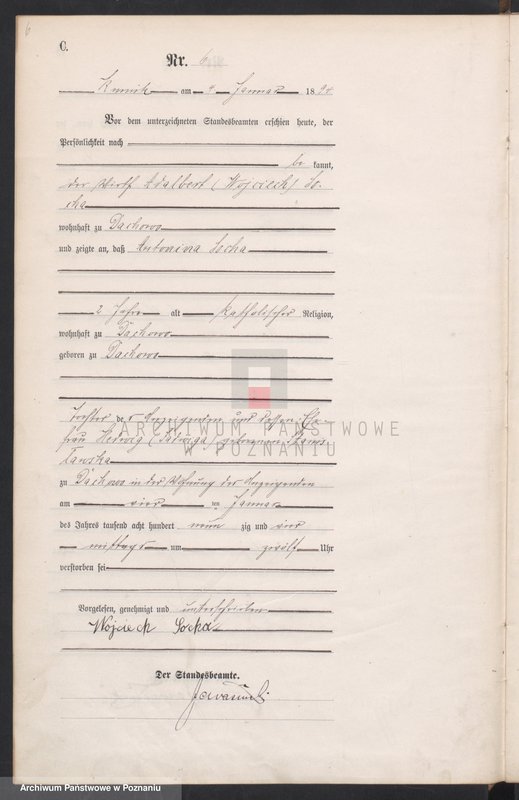 6
C.
Nr. 6
Kurnik am 4 Januar 1894
Vor dem unterzeichneten Standesbeamten erschien heute, der
Persönlichkeit nach
be kannt,
der Wirth Adalbert (Wojciech) So-
cha
wohnhaft zu Dachowo
und zeigte an, daß Antonina Socha
2 Jahre alt katholischer Religion,
wohnhaft zu Dachowo
geboren zu Dachowo
Tochter des Anzeigenden und dessen Ehe-
frau Hedwig (Jadwiga) geborenen
zu Dachowo in der Wohnung des Anzeigenden
am vier ten Januar
des Jahres tausend acht hundert neun zig und vier
mittags um zwölf Uhr
verstorben sei
Vorgelesen, genehmigt und unterschrieben
Wojciech Socha
Der Standesbeamte.
ARCHIWUM PAŃSTWOWE
W POZNANIU
Archiwum Państwowe w Poznaniu